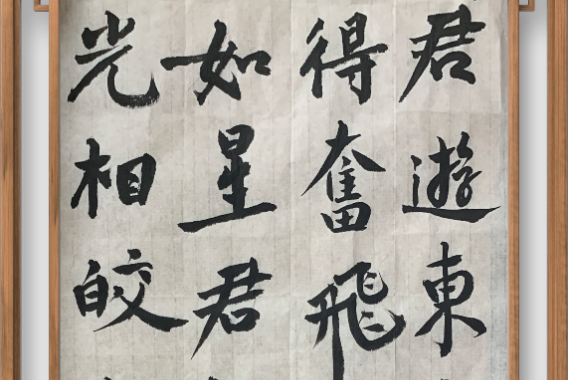 君遊東
得奮飛
如星君
光相皎